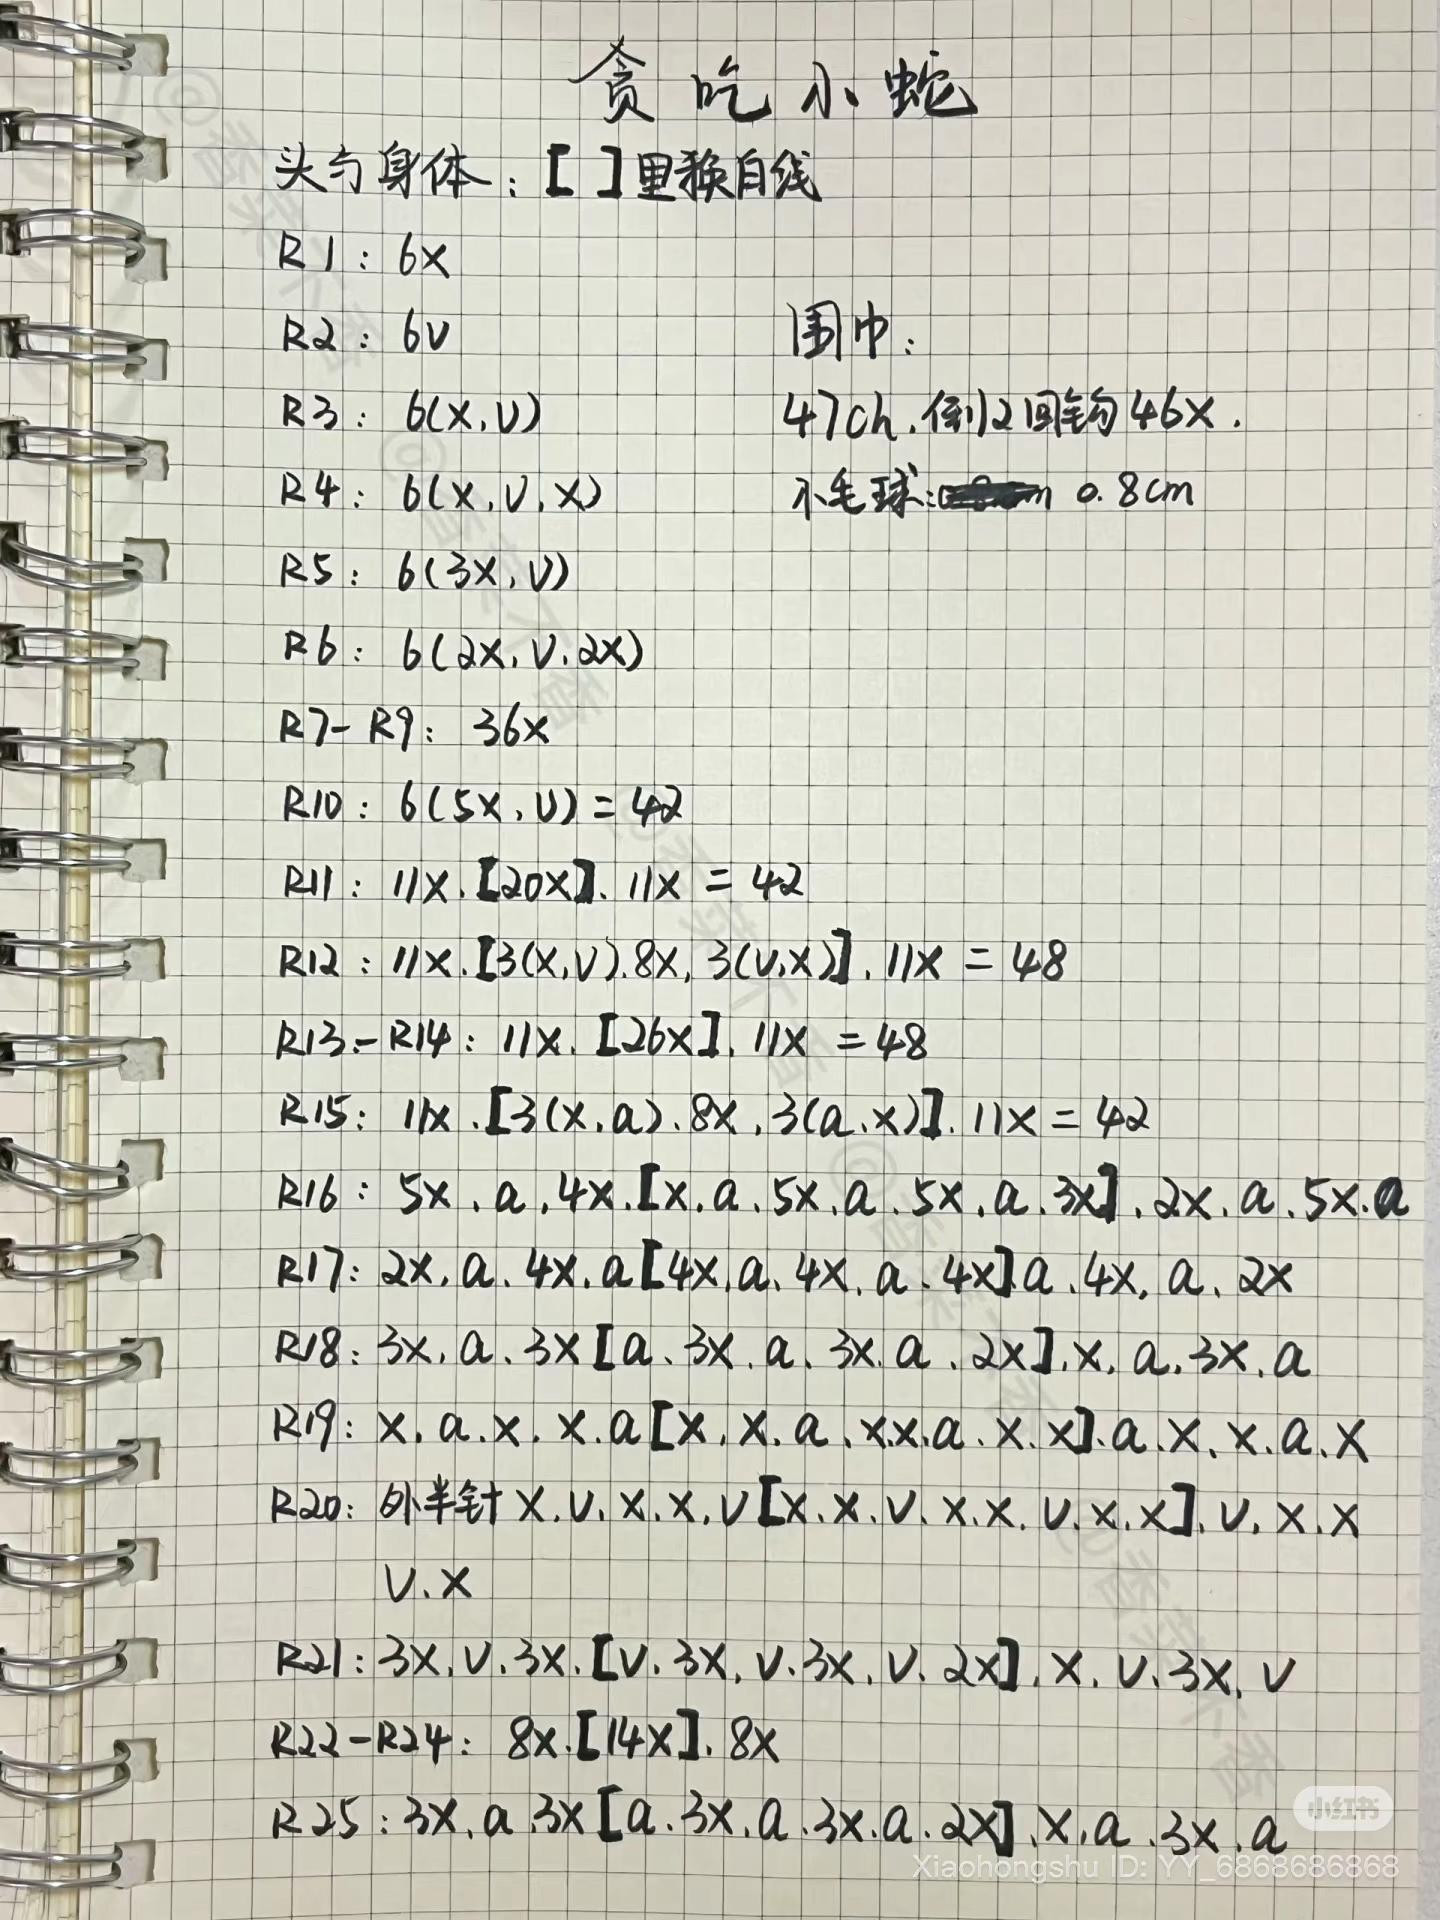 贪吃小蛇
头与身体：【 】里换白线
R1：6X
R2：6V
R3：6(X,V)
R4：6(X,V,X)
R5：6(3X,V)
R6：6(2X,V,2X)
R7-R9：36X
R10：6(5X,V)=42
R11：11X.【20X】.11X=42
R12：11X.【3(X,V).8X,3(V,X)】.11X=48
R13-R14：11X.【26X】.11X=48
R15：11X.【3(X,a).8X,3(a,X)】.11X=42
R16：5X.a.4X.【X.a.5X.a.5X.a.3X】.2X.a.5X.a
R17：2X.a.4X.a【4X.a.4X.a.4X】a.4X.a.2X
R18：3X.a.3X【a.3X.a.3X.a.2X】.X.a.3X.a
R19：X.a.X.X.a【X.X.a.X.X.a.X.X】.a.X.X.a.X
R20：外半针X.V.X.X.V【X.X.V.X.X.V.X.X】.V.X.X
V.X
R21：3X.V.3X.【V.3X.V.3X.V.2X】.X.V.3X.V
R22-R24：8X.【14X】.8X
R25：3X.a.3X【a.3X.a.3X.a.2X】.X.a.3X.a
围巾：
47ch.倒2回钩46X.
小毛球：0.8cm
@香菜不香
@香菜不香
@香菜不香
@香菜不香
@香菜不香
小红书
Xiaohongshu ID: YY_6868686868